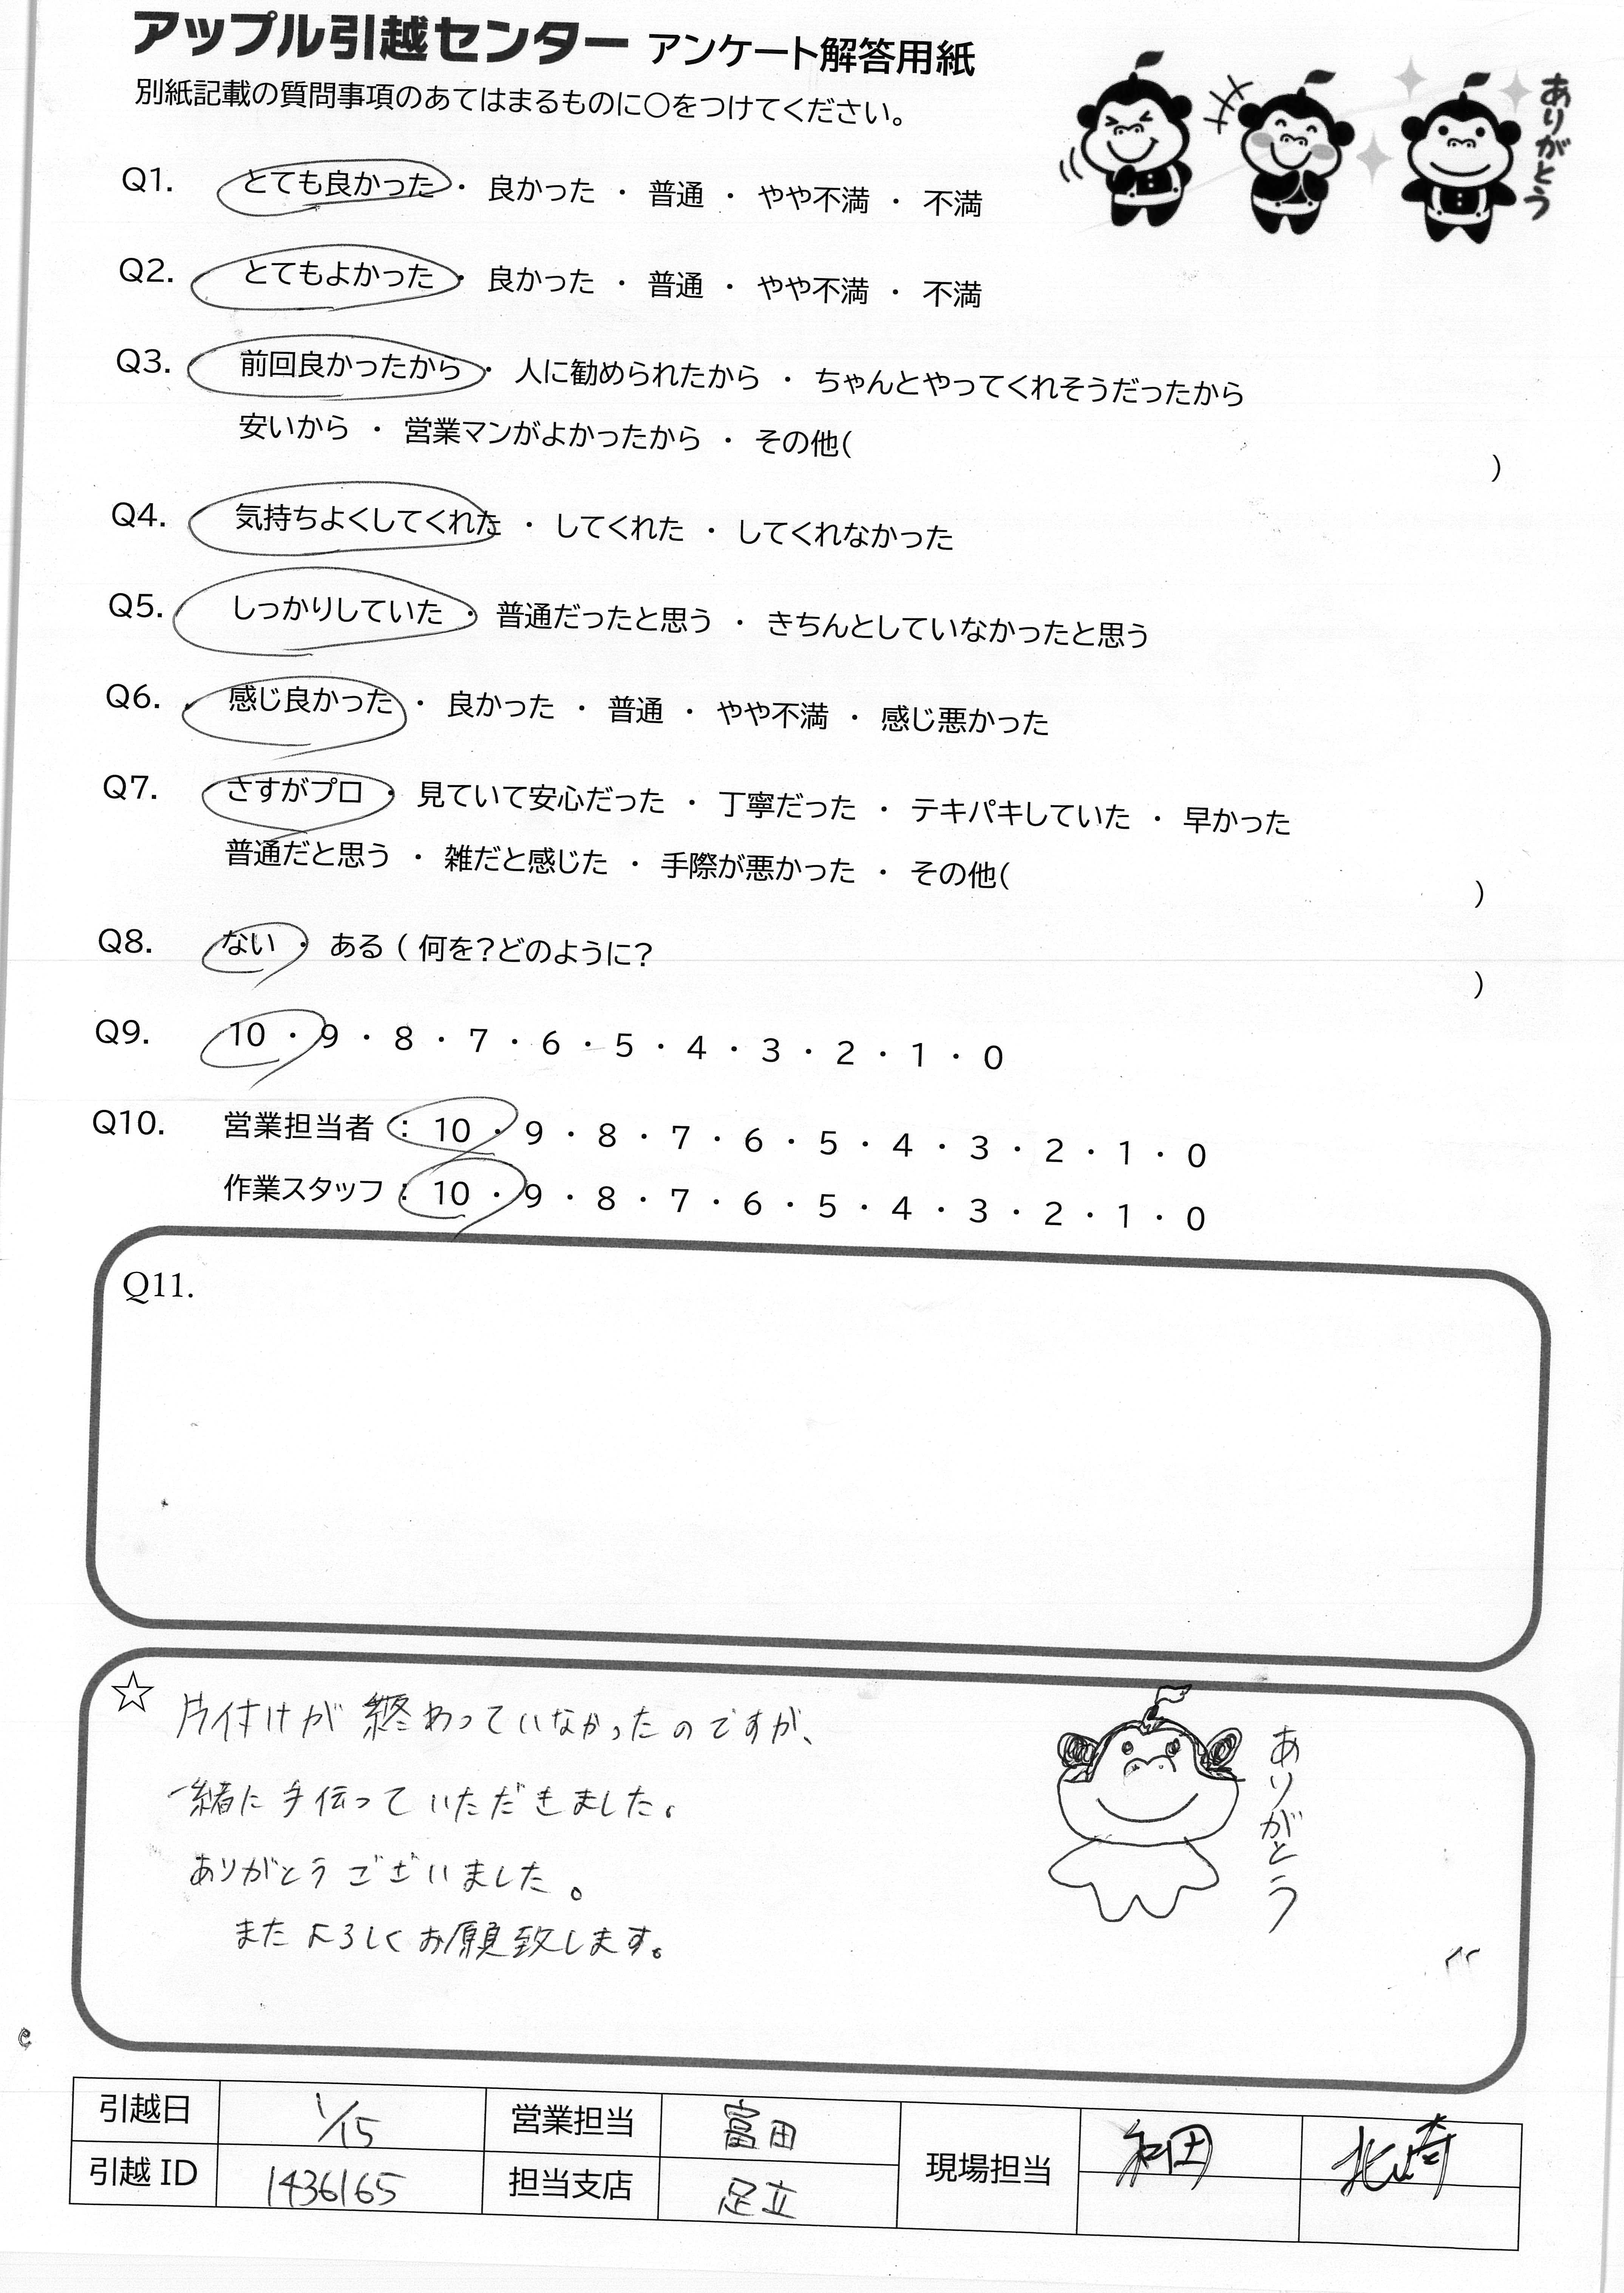 アップル引越センター アンケート解答用紙
別紙記載の質問事項のあてはまるものに○をつけてください。
ありがとう
Q1. とても良かった ・ 良かった ・ 普通 ・ やや不満 ・ 不満
Q2. とてもよかった ・ 良かった ・ 普通 ・ やや不満 ・ 不満
Q3. 前回良かったから ・ 人に勧められたから ・ ちゃんとやってくれそうだったから
安いから ・ 営業マンがよかったから ・ その他( )
Q4. 気持ちよくしてくれた ・ してくれた ・ してくれなかった
Q5. しっかりしていた ・ 普通だったと思う ・ きちんとしていなかったと思う
Q6. 感じ良かった ・ 良かった ・ 普通 ・ やや不満 ・ 感じ悪かった
Q7. さすがプロ ・ 見ていて安心だった ・ 丁寧だった ・ テキパキしていた ・ 早かった
普通だと思う ・ 雑だと感じた ・ 手際が悪かった ・ その他( )
Q8. ない ・ ある ( 何を?どのように? )
Q9. 10 ・ 9 ・ 8 ・ 7 ・ 6 ・ 5 ・ 4 ・ 3 ・ 2 ・ 1 ・ 0
Q10. 営業担当者 : 10 ・ 9 ・ 8 ・ 7 ・ 6 ・ 5 ・ 4 ・ 3 ・ 2 ・ 1 ・ 0
作業スタッフ : 10 ・ 9 ・ 8 ・ 7 ・ 6 ・ 5 ・ 4 ・ 3 ・ 2 ・ 1 ・ 0
Q11.
☆ 片付けが終わっていなかったのですが、
一緒に手伝っていただきました。
ありがとうございました。
またよろしくお願致します。
ありがとう
引越日 1/15 営業担当 富田 現場担当 和田 北崎
引越ID 1436165 担当支店 足立